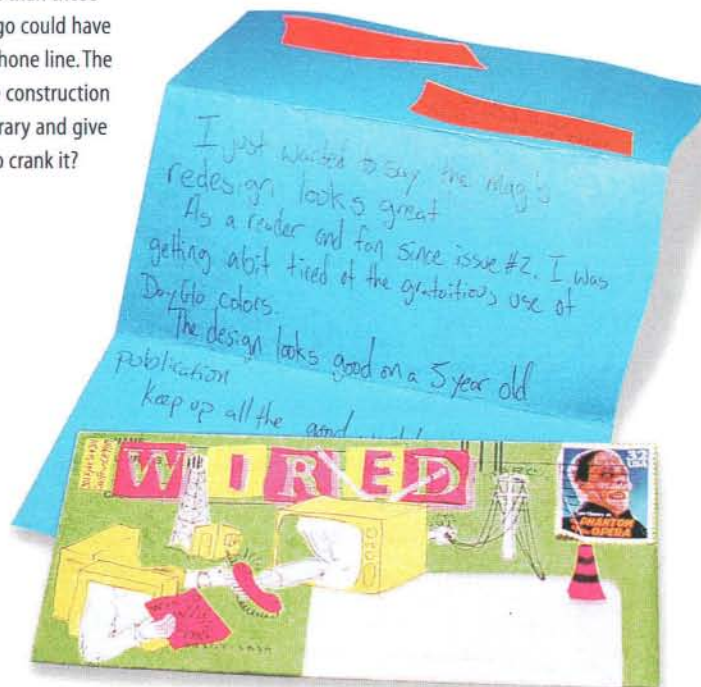 go could have
hone line. The
e construction
rary and give
o crank it?
I just wanted to say the mag's
redesign looks great
As a reader and fan since issue #2. I was
getting a bit tired of the gratoitious use of
DayGlo colors.
The design looks good on a 5 year old
publication
keep up all the good
WIRED
32
USA
PHANTOM
OPERA